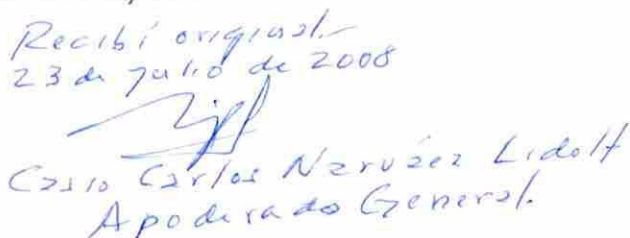 Recibí original.-
23 de Julio de 2008
Casio Carlos Narváez Lidolf
Apoderado General.